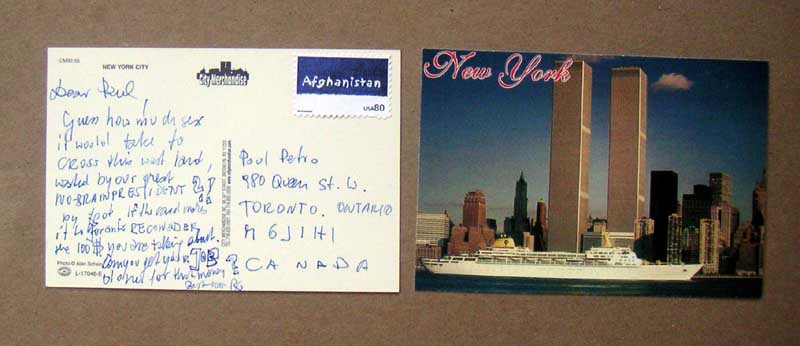 CM90 65
NEW YORK CITY
City Merchandise
Afghanistan
USA80
Dear Paul,
Guess how much sex
it would take to
CROSS this west land,
wasted by our great
NO-BRAINPRESIDENT ?!
by foot. If the card makes
it to Toronto RECONSIDER
the 100$ you are talking about.
Can you get your JOB
for that money ?
Paul Petro
980 Queen St. W.
TORONTO. ONTARIO
M6J1H1
CANADA
L-17046-E
New York